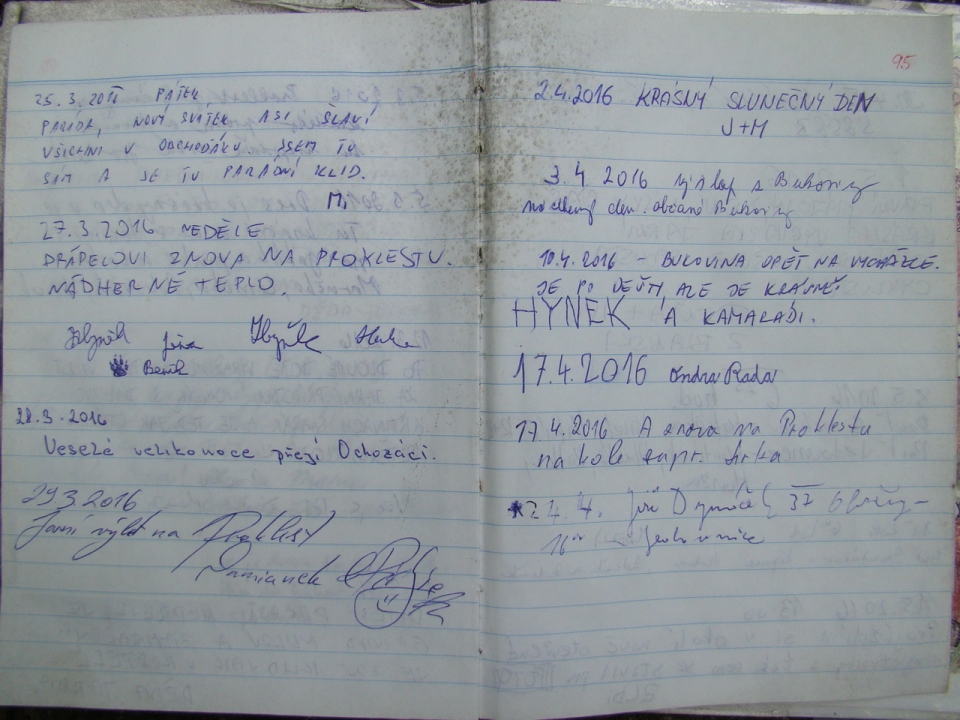 25.3.2016 PÁTEK
PARÁDA, NOVÝ SVÁTEK ASI SLAVÍ
VŠICHNI V OBCHOĎÁKU. JSEM TU
SÁM A JE TU PARÁDNÍ KLID.
M.
27.3.2016 NEDĚLE
DRÁPELOVI ZNOVA NA PROKLESTU.
NÁDHERNÉ TEPLO.
Zbyněk Jana Hynek
Beník
28.3.2016
Veselé velikonoce přejí Ochozáci.
29 3 2016
Jarní výlet na Proklest
Damianek
95
2.4.2016 KRÁSNÝ SLUNEČNÝ DEN
J+M
3.4 2016 výšlap z Bukoviny
občané Bukoviny
10.4.2016 - BUKOVINA OPĚT NA VYCHÁZCE.
JE PO DEŠTI ALE JE KRÁSNĚ
HYNEK A KAMARÁDI.
17.4.2016 Ondra Rada
17.4.2016 A znova na Proklestu
na kole zapr. Jirka
24.4. Jiří